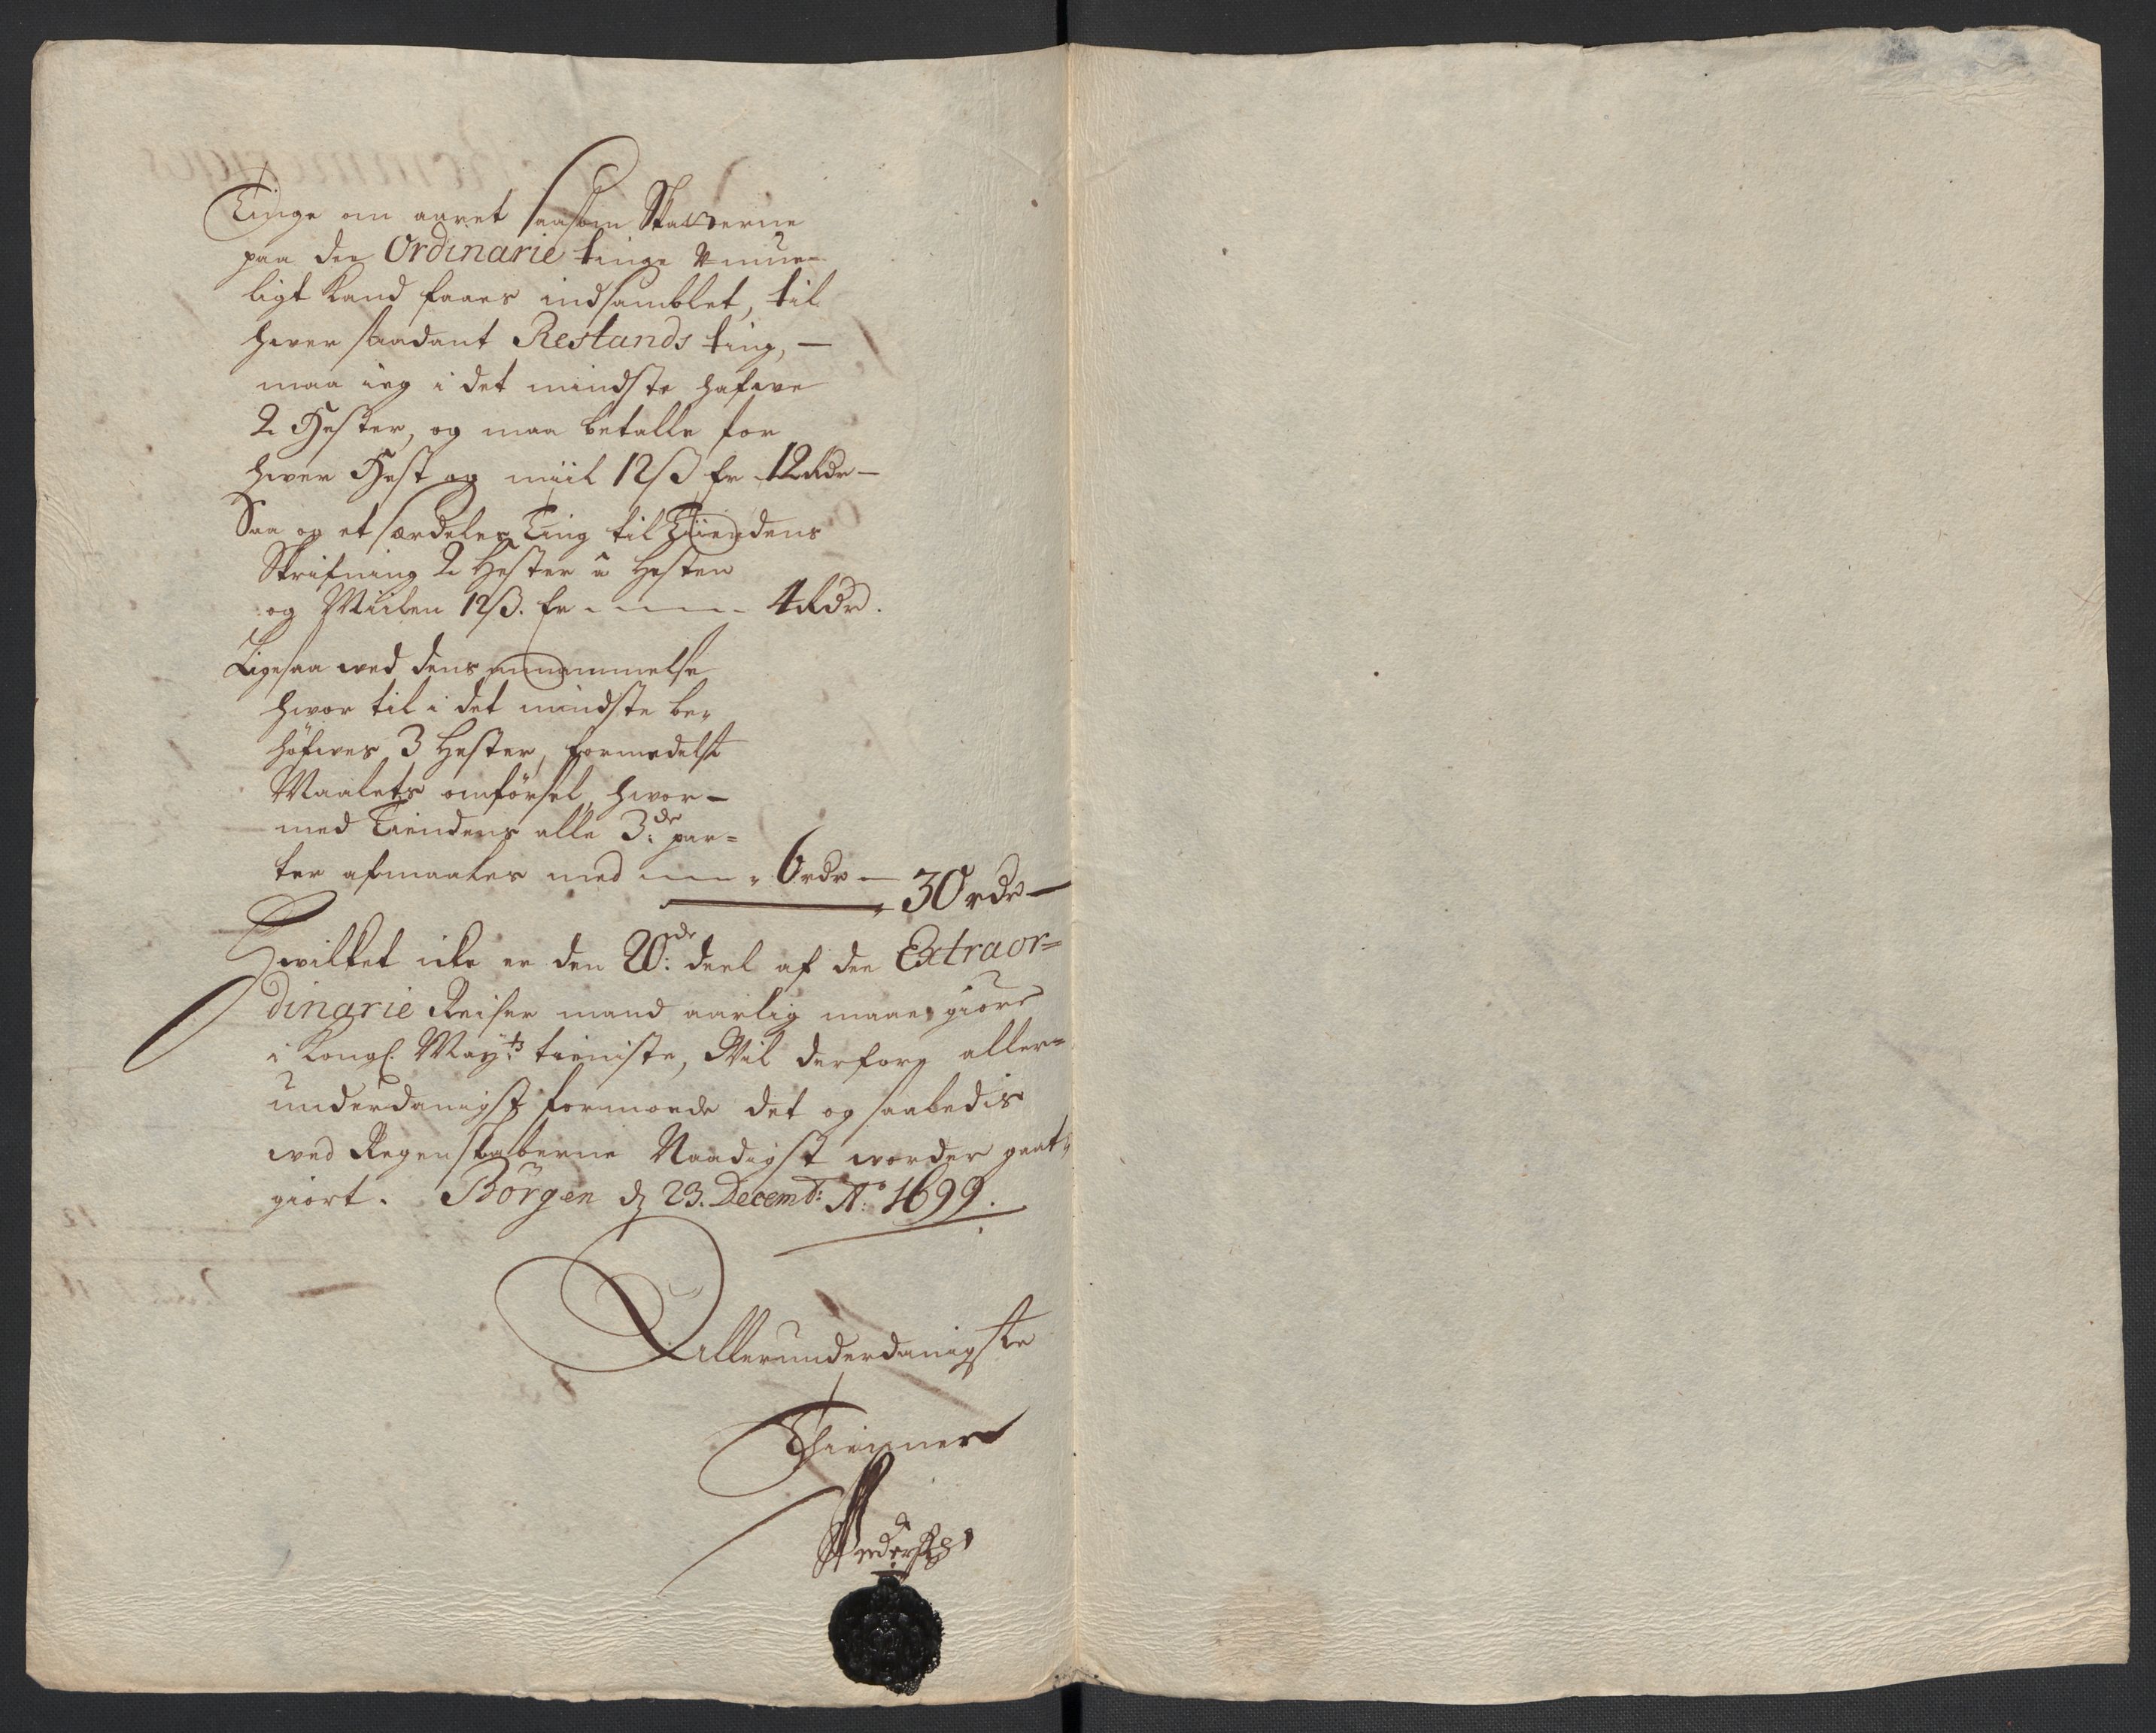 Tinge om aaret saasom Skatterne
paa de Ordinarie tinge umue-
ligt kand faaes indsamblet, til
hver saadant Restands ting, —
maa ieg i det mindste hafve
2 Hester, og maa betalle for
hver Hest og miil 12ß Er 12Rdr —
Saa og et særdeles Ting til Tiiendens
Skrifning 2 Hester â Hesten
og Miilen 12ß. Er - - - - 4Rdr.
Ligesaa ved dens annammelse
hvor til i det mindste be-
höfves 3 Hester, formedelst
Maalets omförsel, hvor-
med Tiendens alle 3de par=
ter afmaales med - - - 6rdr —
30rdr —
Hvilket icke er den 20de deel af de Extraor=
dinarie Reiser mand aarlig maae giöre
i Kongl. Mayts tieniste, Vil derfore aller=
underdanigst formoede det og saaledis
ved Regenskaberne Naadigst vorder godt-
giort. Börgen d 23. Decemb: Ao 1699.
Allerunderdanigste
Thienner